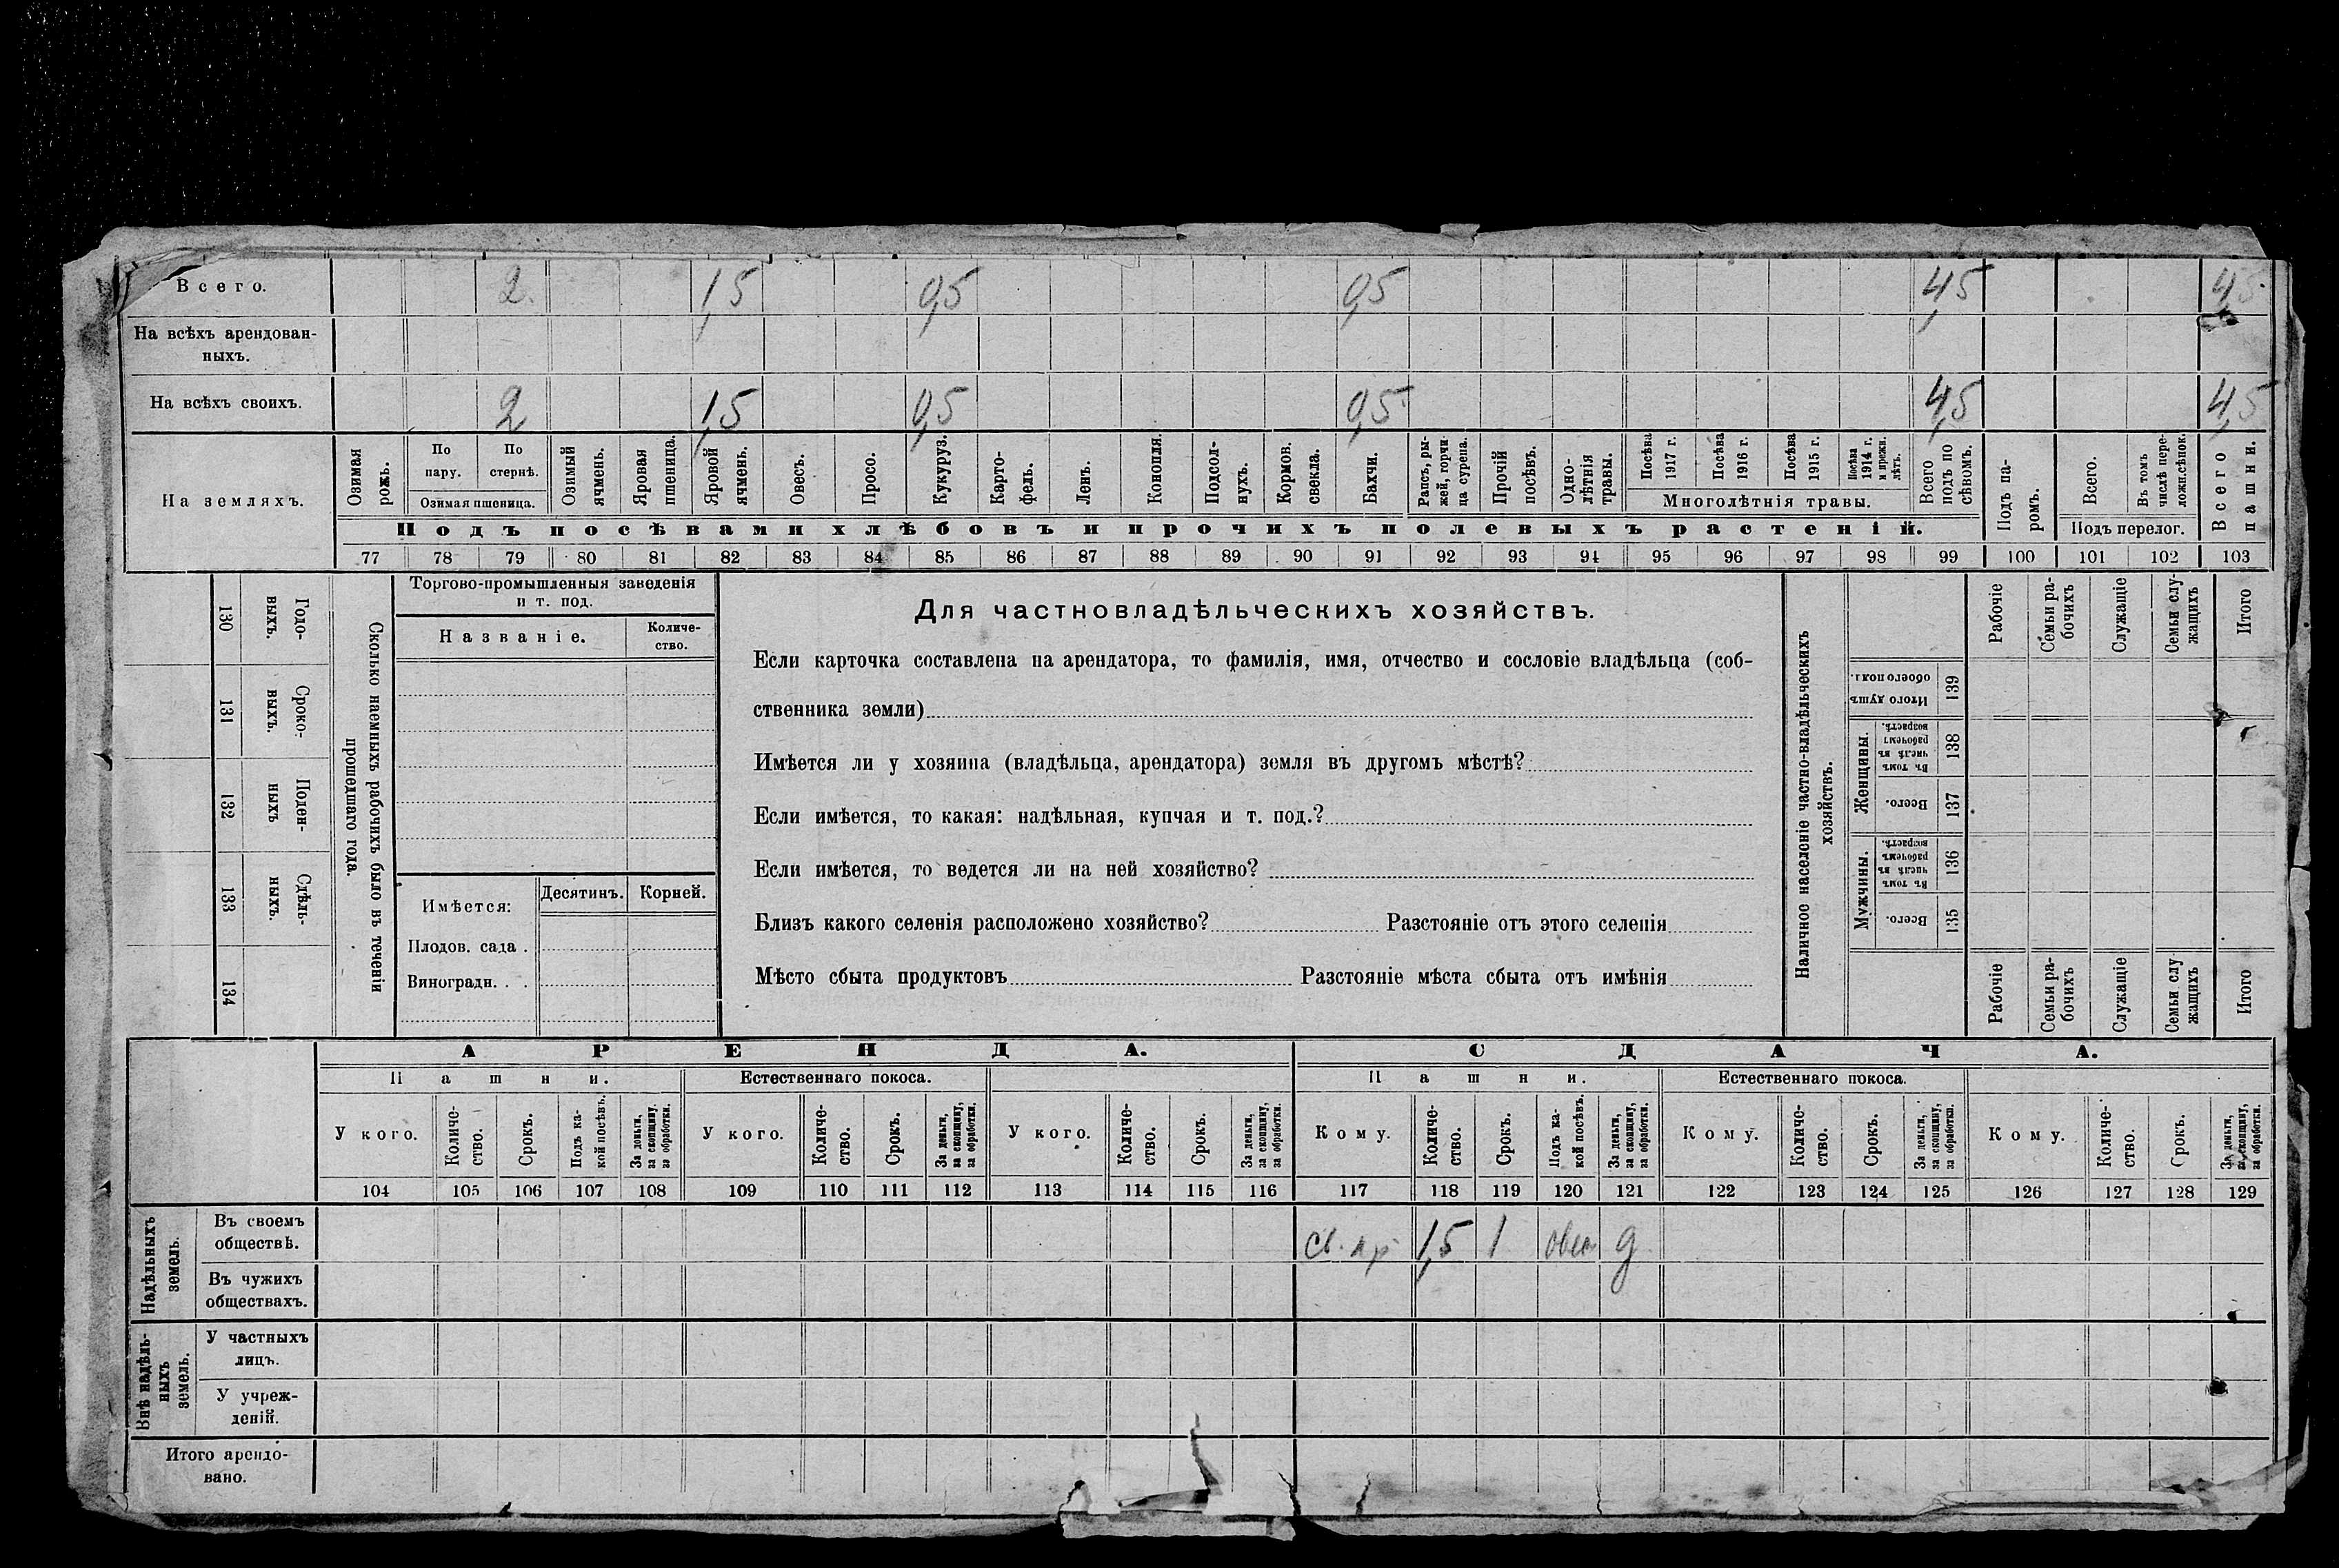 Всего. 2. 1,5 0,5 0,5 4,5 4,5
На всѣхъ арендован-
ныхъ.
На всѣхъ своихъ. 2 1,5 0,5 0,5 4,5 4,5
На земляхъ.
Озимая рожь.
По пару.
По стернѣ.
Озимая пшеница.
Озимый ячмень.
Яровая пшеница.
Яровой ячмень.
Овесъ.
Просо.
Кукуруз.
Карто-
фель.
Ленъ.
Конопля.
Подсол-
нухъ.
Кормов. свекла.
Бахчи.
Рапсъ, ры-
жей, горчи-
ца сурепа.
Прочій посѣвъ.
Одно-
лѣтнія
травы.
Посѣва 1917 г.
Посѣва 1916 г.
Посѣва 1915 г.
Посѣва 1914 г. и прежн. лѣтъ.
Многолѣтнія травы.
Всего подъ по
сѣвомъ.
Подъ па-
ромъ.
Всего.
Въ томъ числѣ пере-
ложн.сѣнок.
Подъ перелог.
Всего пашни.
Подъ посѣвами хлѣбовъ и прочихъ полевыхъ растеній.
77 78 79 80 81 82 83 84 85 86 87 88 89 90 91 92 93 94 95 96 97 98 99 100 101 102 103
130 Годо-
выхъ.
131 Сроко-
выхъ.
132 Поден-
ныхъ
133 Сдѣль-
ныхъ.
134
Сколько наемныхъ рабочихъ было въ теченіи
прошедшаго года.
Торгово-промышленныя заведенія
и т. под.
Названіе.
Количе-
ство.
Имѣется: Десятинъ. Корней.
Плодов. сада .
Виноградн. . .
Для частновладѣльческихъ хозяйствъ.
Если карточка составлена на арендатора, то фамилія, имя, отчество и сословіе владѣльца (соб-
ственника земли)
Имѣется ли у хозяина (владѣльца, арендатора) земля въ другомъ мѣстѣ?
Если имѣется, то какая: надѣльная, купчая и т. под.?
Если имѣется, то ведется ли на ней хозяйство?
Близъ какого селенія расположено хозяйство? Разстояніе отъ этого селенія
Мѣсто сбыта продуктовъ Разстояніе мѣста сбыта отъ имѣнія
Наличное населеніе частно-владѣльческихъ
хозяйствъ.
Рабочіе
Семьи ра-
бочихъ
Служащіе
Семьи слу-
жащихъ
Итого
Итого душъ
обоего пола.
139
Женщины.
Въ томъ числѣ въ рабочемъ возрастѣ.
138
Всего.
137
Мужчины.
Въ томъ числѣ въ рабочемъ возрастѣ.
136
Всего.
135
Рабочіе
Семьи ра-
бочихъ
Служащіе
Семьи слу
жащихъ
Итого
АРЕНДА. СДАЧА.
Пашни. Естественнаго покоса. Пашни. Естественнаго покоса.
У кого.
Количе-
ство.
Срокъ.
Подъ ка-
кой посѣвъ.
За деньги,
за скопщину,
за обработки.
У кого.
Количе-
ство.
Срокъ.
За деньги,
за скопщину,
за обработки.
У кого.
Количе-
ство.
Срокъ.
За деньги,
за скопщину,
за обработки.
Кому.
Количе-
ство.
Срокъ.
Подъ ка-
кой посѣвъ.
За деньги,
за скопщину,
за обработки.
Кому.
Количе-
ство.
Срокъ.
За деньги,
за скопщину,
за обработки.
Кому.
Количе-
ство.
Срокъ.
За деньги,
за скопщину,
за обработки.
104 105 106 107 108 109 110 111 112 113 114 115 116 117 118 119 120 121 122 123 124 125 126 127 128 129
Надѣльныхъ
земель.
Въ своемъ
обществѣ.
1,5 1 д
Въ чужихъ
обществахъ.
Внѣ надѣль-
ныхъ
земель.
У частныхъ
лицъ.
У учреж-
деній.
Итого арендо-
вано.